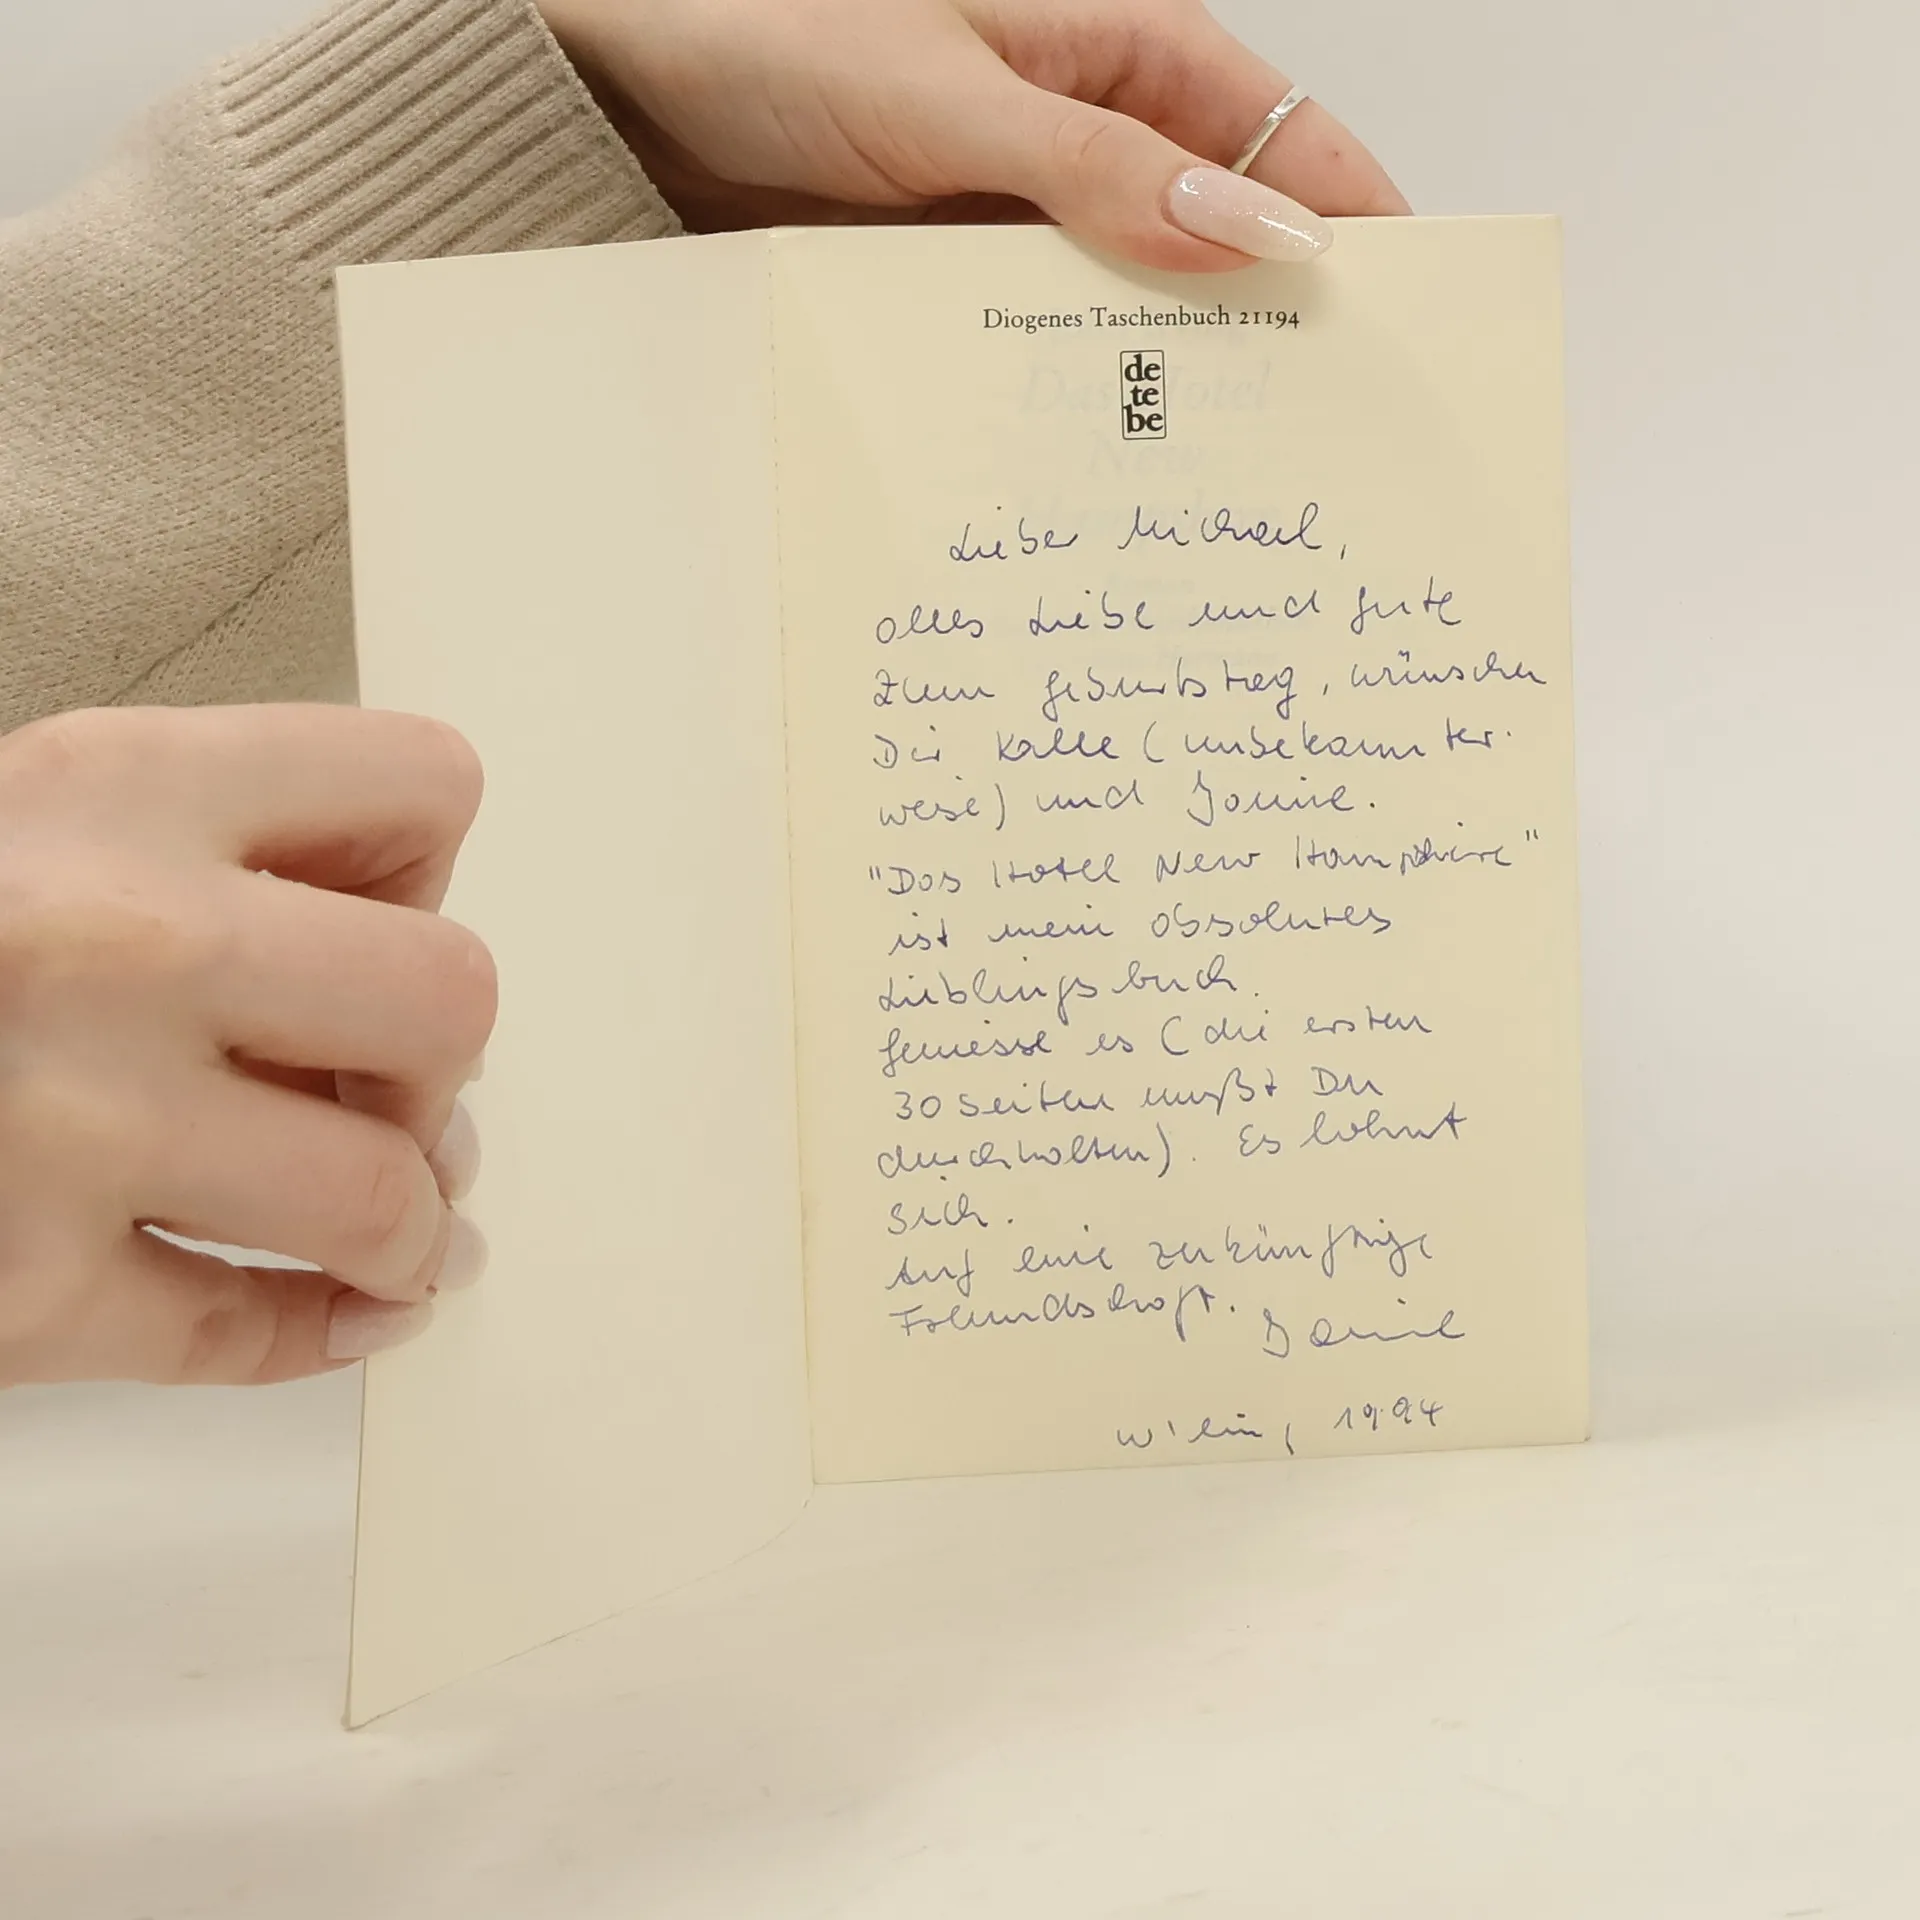 Diogenes Taschenbuch 21194
de
te
be
Das Hotel
New
Lieber Michael,
alles Liebe und gute
zum Geburtstag, wünschen
Dir Kalle (unbekannter-
weise) und
"Das Hotel New Hampshire"
ist mein absolutes
Lieblingsbuch.
Geniesse es (die ersten
30 Seiten mußt Du
durchhalten). Es lohnt
sich.
Auf eine zukünftige
Freundschaft.
1994